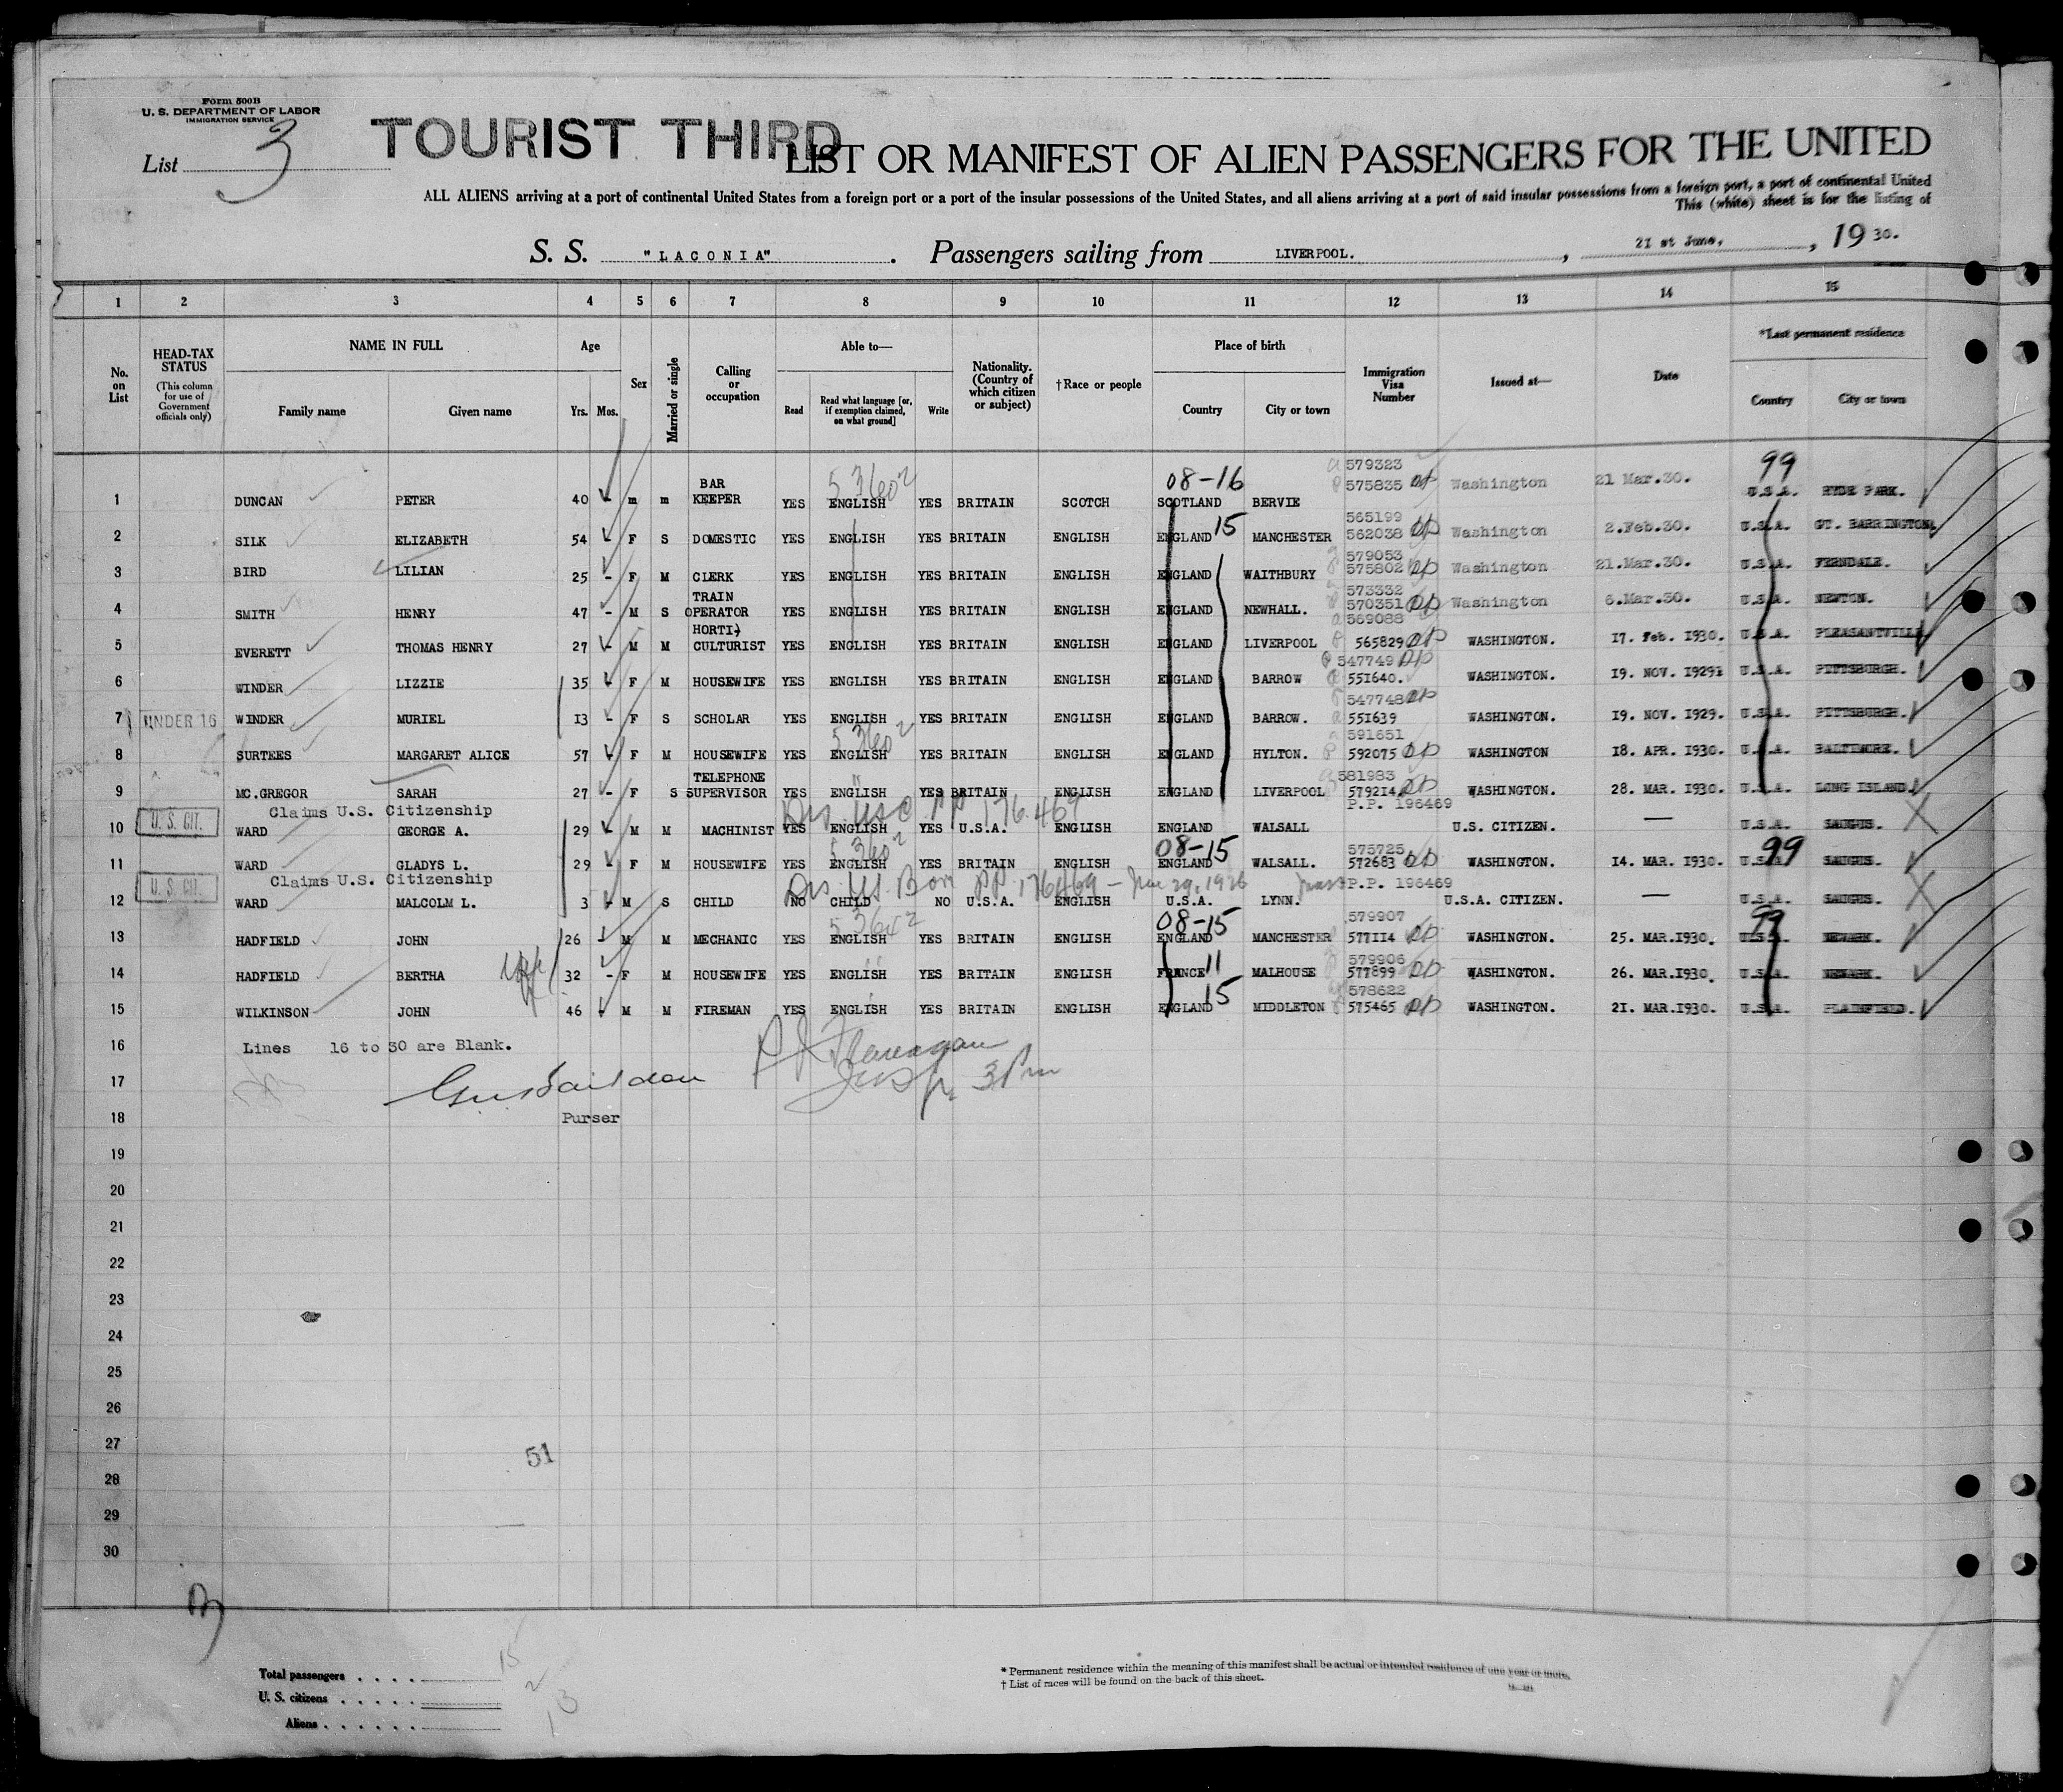 Form 500B
U. S. DEPARTMENT OF LABOR
IMMIGRATION SERVICE
List 3
TOURIST THIRD
LIST OR MANIFEST OF ALIEN PASSENGERS FOR THE UNITED
ALL ALIENS arriving at a port of continental United States from a foreign port or a port of the insular possessions of the United States, and all aliens arriving at a port of said insular possessions from a foreign port, a port of continental United
This (white) sheet is for the listing of
S. S. "LACONIA" . Passengers sailing from LIVERPOOL. , 21 st June, , 19 30.
1 2 3 4 5 6 7 8 9 10 11 12 13 14 15
No. on List
HEAD-TAX STATUS
(This column for use of Government officials only)
NAME IN FULL
Family name Given name
Age
Yrs. Mos.
Sex
Married or single
Calling or occupation
Able to—
Read Read what language [or, if exemption claimed, on what ground] Write
Nationality. (Country of which citizen or subject)
†Race or people
Place of birth
Country City or town
Immigration Visa Number
Issued at—
Date
*Last permanent residence
Country City or town
53602 08-16 579323 99
1 DUNCAN PETER 40 - m m BAR KEEPER YES ENGLISH YES BRITAIN SCOTCH SCOTLAND BERVIE 575835 Washington 21 Mar.30. U.S.A. HYDE PARK.
15 565199
2 SILK ELIZABETH 54 F S DOMESTIC YES ENGLISH YES BRITAIN ENGLISH ENGLAND MANCHESTER 562038 Washington 2.Feb.30. U.S.A. GT. BARRINGTON.
579053
3 BIRD LILIAN 25 - F M CLERK YES ENGLISH YES BRITAIN ENGLISH ENGLAND WAITHBURY 575802 Washington 21.Mar.30. U.S.A. FERNDALE.
573332
4 SMITH HENRY 47 - M S TRAIN OPERATOR YES ENGLISH YES BRITAIN ENGLISH ENGLAND NEWHALL. 570351 Washington 6.Mar.30. U.S.A. NEWTON.
569088
5 EVERETT THOMAS HENRY 27 - M M HORTI-CULTURIST YES ENGLISH YES BRITAIN ENGLISH ENGLAND LIVERPOOL 565829 WASHINGTON. 17. Feb. 1930. U.S.A. PLEASANTVILLE
547749
6 WINDER LIZZIE 35 F M HOUSEWIFE YES ENGLISH YES BRITAIN ENGLISH ENGLAND BARROW 551640. WASHINGTON. 19. NOV. 1929. U.S.A. PITTSBURGH.
547748
7 UNDER 16 WINDER MURIEL 13 - F S SCHOLAR YES ENGLISH YES BRITAIN ENGLISH ENGLAND BARROW. 551639 WASHINGTON. 19. NOV. 1929. U.S.A. PITTSBURGH.
53602 591651
8 SURTEES MARGARET ALICE 57 F M HOUSEWIFE YES ENGLISH YES BRITAIN ENGLISH ENGLAND HYLTON. 592075 WASHINGTON 18. APR. 1930. U.S.A. BALTIMORE.
581983
9 MC.GREGOR SARAH 27 - F S TELEPHONE SUPERVISOR YES ENGLISH YES BRITAIN ENGLISH ENGLAND LIVERPOOL 579214 WASHINGTON. 28. MAR. 1930. U.S.A. LONG ISLAND.
Claims U.S. Citizenship 176469 P.P. 196469
10 U. S. CIT. WARD GEORGE A. 29 M M MACHINIST YES ENGLISH YES U.S.A. ENGLISH ENGLAND WALSALL U.S. CITIZEN. — U.S.A. SAUGUS.
53602 08-15 575725 99
11 WARD GLADYS L. 29 - F M HOUSEWIFE YES ENGLISH YES BRITAIN ENGLISH ENGLAND WALSALL. 572683 WASHINGTON. 14. MAR. 1930. U.S.A SAUGUS.
Claims U.S. Citizenship P.P. 196469
12 U. S. CIT. WARD MALCOLM L. 3 M S CHILD NO CHILD NO U.S.A. ENGLISH U.S.A. LYNN. U.S.A. CITIZEN. — U.S.A SAUGUS.
53602 08-15 579907 99
13 HADFIELD JOHN 26 M M MECHANIC YES ENGLISH YES BRITAIN ENGLISH ENGLAND MANCHESTER 577114 WASHINGTON. 25. MAR.1930. U.S.A. NEWARK.
wife 11 579906
14 HADFIELD BERTHA 32 - F M HOUSEWIFE YES ENGLISH YES BRITAIN ENGLISH FRANCE MALHOUSE 577899 WASHINGTON. 26. MAR.1930. U.S.A NEWARK.
15 578622
15 WILKINSON JOHN 46 M M FIREMAN YES ENGLISH YES BRITAIN ENGLISH ENGLAND MIDDLETON 575465 WASHINGTON. 21. MAR.1930. U.S.A. PLAINFIELD.
16 Lines 16 to 30 are Blank.
17 3 Pm
18 Purser
19
20
21
22
23
24
25
26
27
51
28
29
30
Total passengers . . . . 15
U. S. citizens . . . . . 2
Aliens . . . . . . 13
* Permanent residence within the meaning of this manifest shall be actual or intended residence of one year or more.
† List of races will be found on the back of this sheet.